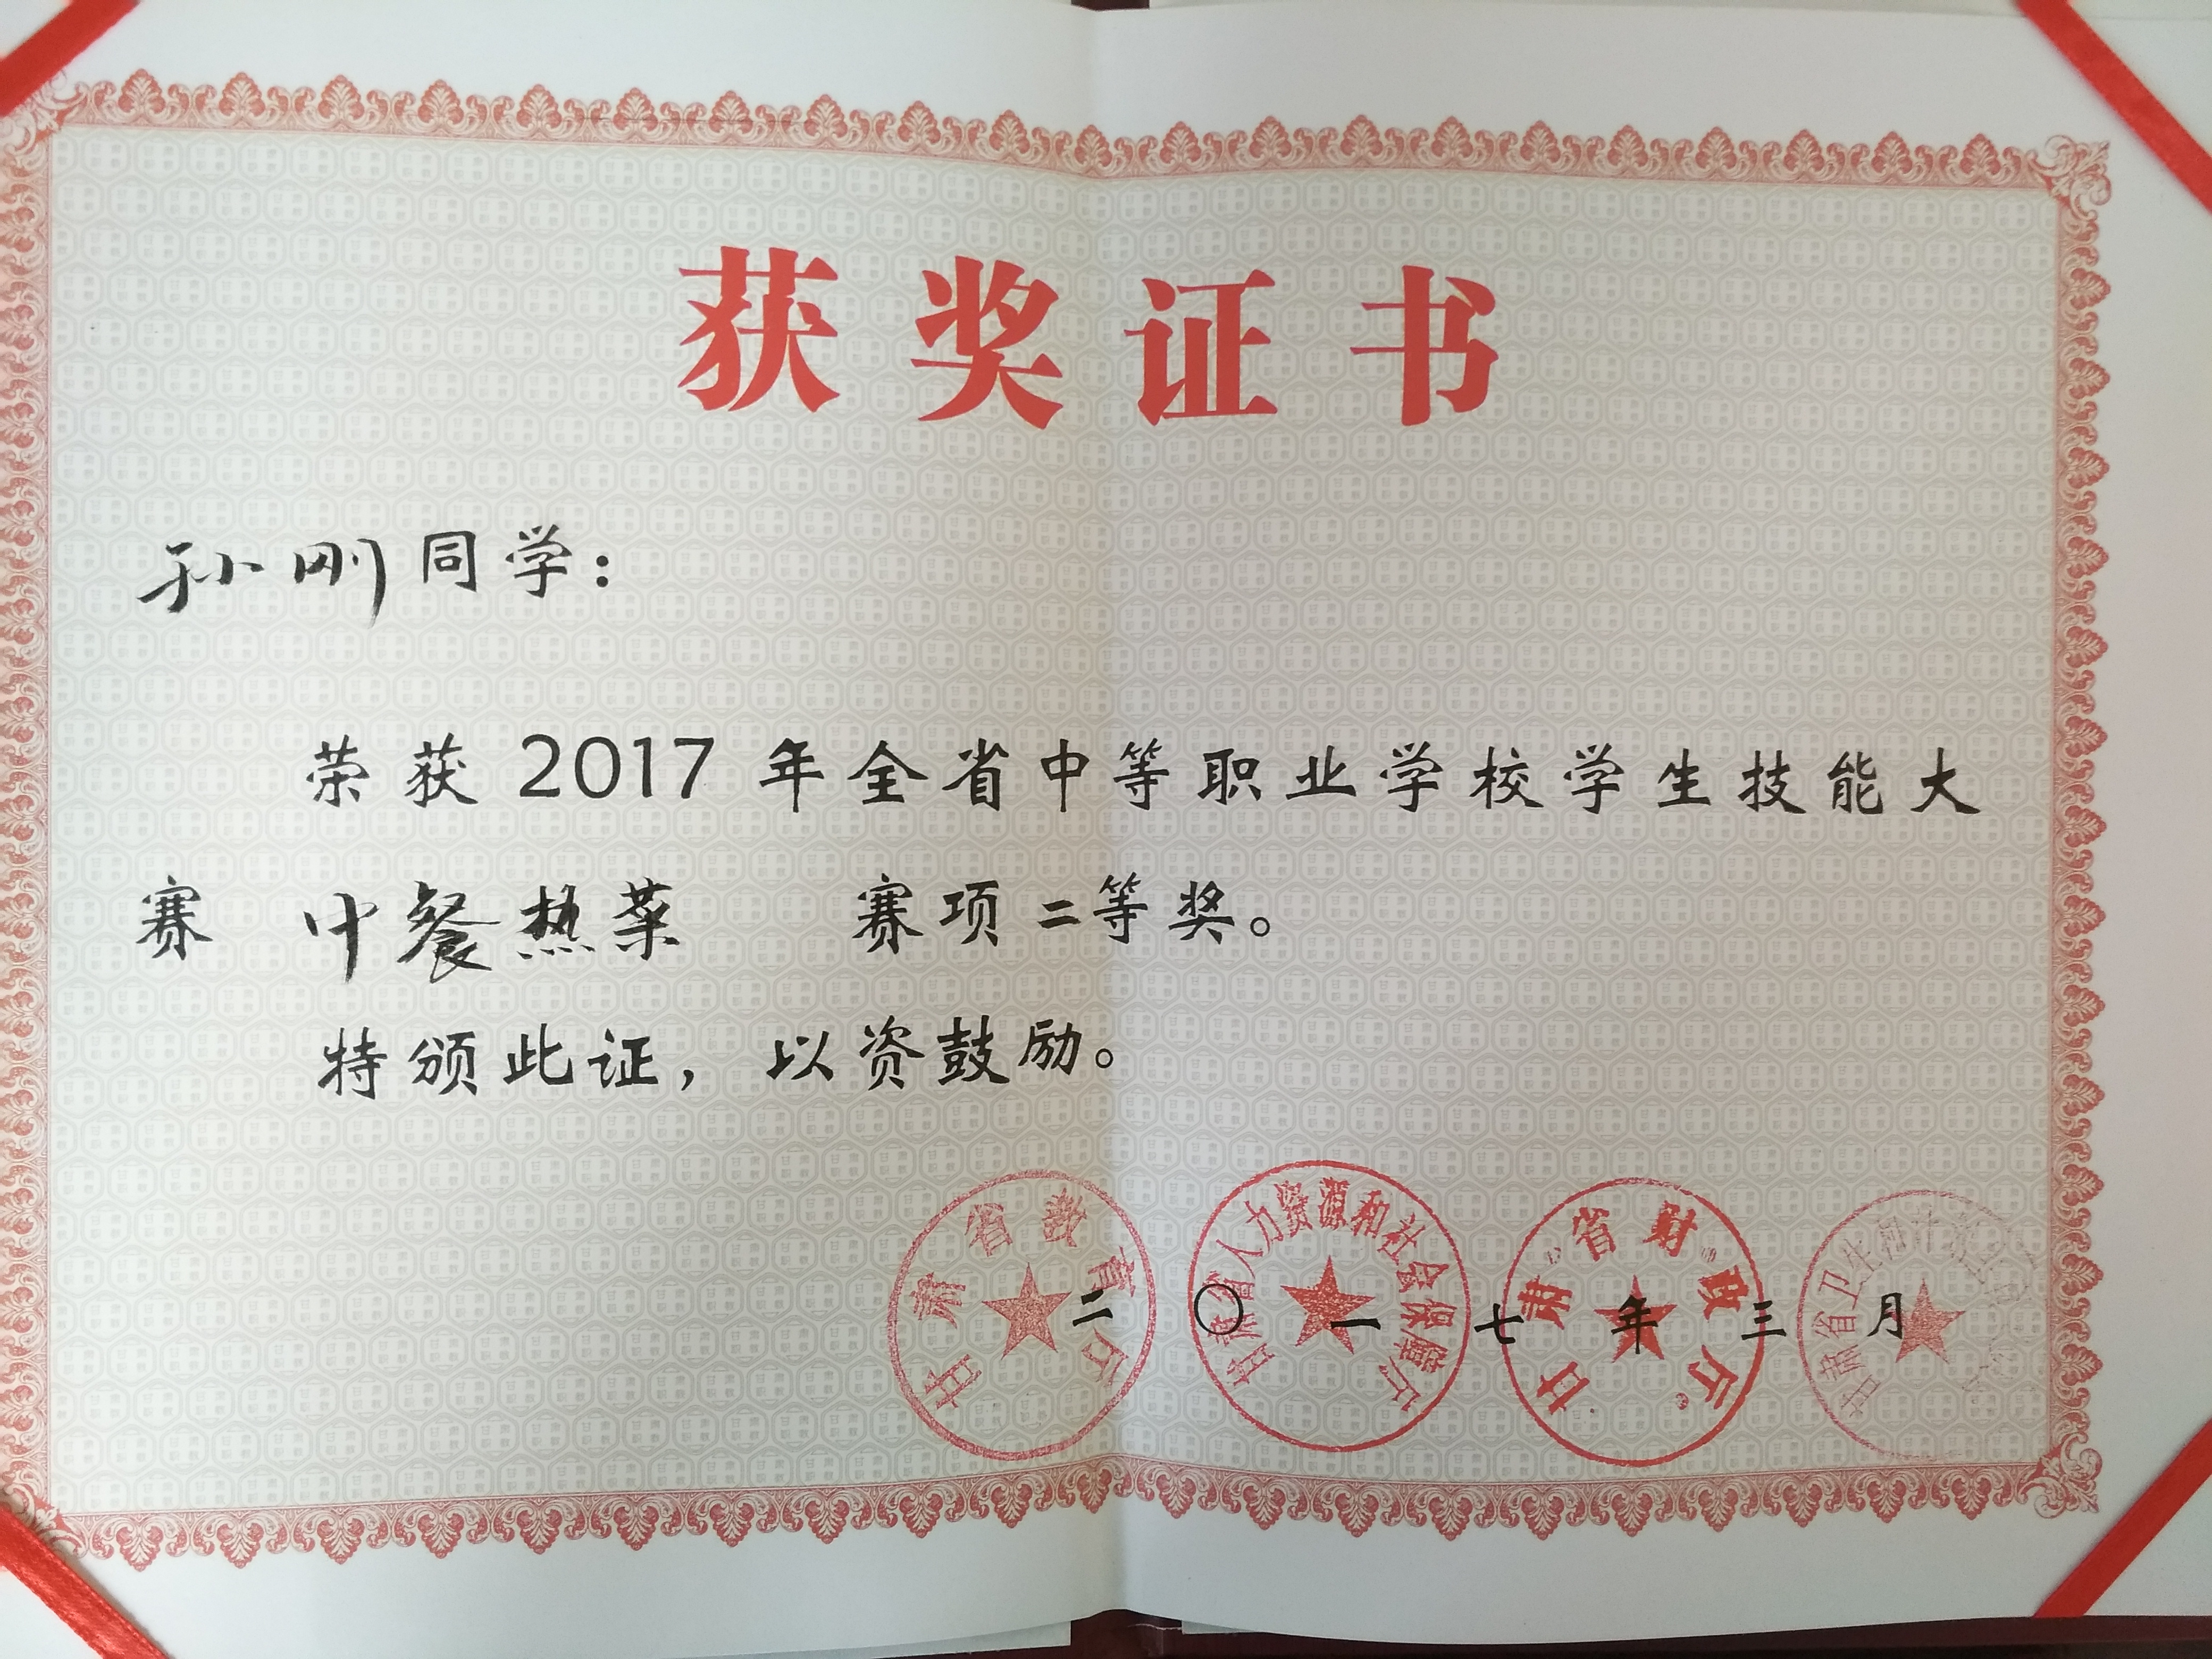 获奖证书
孙刚同学：
荣获2017年全省中等职业学校学生技能大
赛 中餐热菜 赛项二等奖。
特颁此证，以资鼓励。
甘肃省教育厅
甘肃省人力资源和社会保障厅
甘肃省财政厅
甘肃省卫生和计
二〇一七年三月